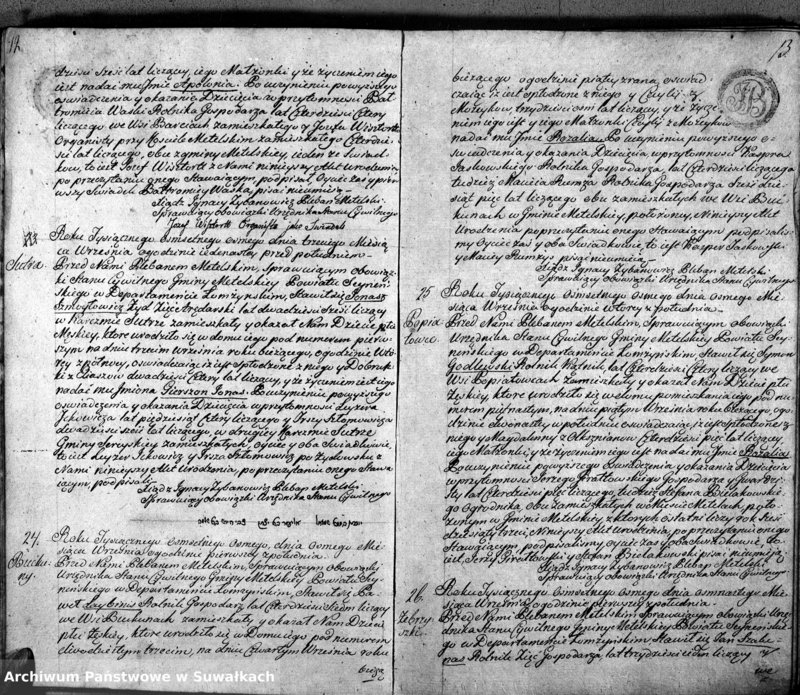 12
dziesci sześć lat liczący, iego Małżonki y że życzeniem iego
iest nadać mu Imie Apolonia. Po uczynieniu powyższego
oswiadczenia y okazania Dziecięcia w przytomności Bar
tromieia Waski Rolnika Gospodarza lat Czterdzieści Cztery
liczącego we Wsi zamieszkałego y Jozefa Wisztort
Organisty przy Kosciele Metelskim zamieszkałego Czterdzie
ści lat liczącego, obu z gminy Metelskiej, ieden ze Swiad
kow, to iest Jozef Wisztort z Nami ninieyszy Akt urodzenia
po przeczytaniu onego Stawaiącym, podpisał Oyciec zaś y pier
wszy Swiadek Bartromiey Waska, pisać nieumieią
Xiądz Ignacy Zybanowicz Pleban Metelski
Sprawuiący obowiązki Urzędnika Stanu Cywilnego
Jozef Wisztortt Organista jako Swiadek
23
Sutra
Roku Tysiącznego Osmsetnego osmego dnia trzeciego Miesią
ca Września, o godzinie iedenastey przed południem
Przed Nami Plebanem Metelskim, Sprawuiącym obowiąz
ki Stanu Cywilnego Gminy Metelskiey Powiatu Seyneń
skiego w Departamencie Łomżynskim, Stawił się Jonasz
Żyd Zięć Arędarski lat dwadzieścia sześć liczący
w Karczmie Sutrze zamieszkały y okazał Nam Dziecię płci
Męskiey, które urodziło się w domu iego pod numerem pierw
szym na dniu trzecim Września roku bieżącego, o godzinie Wtó
rey z północy, oswiadczaiąc iż iest spłodzone z niego y Dobruki
z dwadzieścia Cztery lat liczący, y że życzeniem iest iego
nadać mu Imiona Gierszon Jonas. Po uczynieniu powyższego
oswiadczenia y okazania Dziecięcia w przytomności Leyzera
Ickowicza lat pięćdziesiąt Cztery liczącego y Irszy Szlomowicza
dwadzieścia sześć lat liczącego w drugiey Karczmie Sutrze
Gminy zamieszkałych, oyciec y oba Swiadkowie,
to iest Leyzer Ickowicz y Irsza Szlomowicz po Żydowsku z
Nami ninieyszy Akt Urodzenia, po przeczytaniu onego Stawa
iącym, podpisali
Xiądz Ignacy Zybanowicz Pleban Metelski
Sprawuiący obowiązki Urzędnika Stanu Cywilnego
24.
Buchu
ny.
Roku Tysiącznego osmsetnego osmego, dnia osmego Mie
siąca Września o godzinie pierwszey z południa
Przed Nami Plebanem Metelskim, Sprawuiącym obowiązki
Urzędnika Stanu Cywilnego Gminy Metelskiey Powiatu Sey
neńskiego w Departamencie Łomżynskim, Stawił się
Rolnik Gospodarz lat Czterdzieści Siedm liczący
we Wsi Buchunach zamieszkały y okazał Nam Dziecię
płci Żeńskiey, które urodziło się w Domu iego pod numerem
dwudziestym trzecim, na dniu Czwartym Września roku
bieżą
13
bieżącego o godzinie piątey zrana, oswiad
czaiąc iż iest spłodzone z niego y
trzydzieści osm lat liczący, y że życze
niem iego iest y iego Małżonki
nadać mu Imie Rozalia. Po uczynieniu powyższego o
swiadczenia y okazania Dziecięcia w przytomności Kaspra
Jaskowskiego Rolnika Gospodarza lat Czterdzieści liczącego
tudzież Macieia Rumza Rolnika Gospodarza Sześć dzie
siąt pięć lat liczącego obu zamieszkałych we Wsi Buc
hunach w Gminie Metelskiey, położoney, Ninieyszy Akt
Urodzenia po przeczytaniu onego Stawaiącym podpisaliśmy
Oyciec zaś y oba Swiadkowie, to iest Kasper Jaskowski
y Maciey Rumza pisać nieumieią
Xiądz Ignacy Zybanowicz Pleban Metelski
Sprawuiący obowiązki Urzędnika Stanu Cywilnego
25
Popia
towce
Roku Tysiącznego Osmsetnego osmego dnia osmego Mie
siąca Września o godzinie wtorey z południa
Przed Nami Plebanem Metelskim, Sprawuiącym obowiązki
Urzędnika Stanu Cywilnego Gminy Metelskiey Powiatu Sey
neńskiego w Departamencie Łomżynskim, Stawił się Symon
Godlewski Rolnik lat Czterdzieści Cztery liczący we
Wsi Popiatowcach zamieszkały y okazał Nam Dziecię płci
Żęńskiey, które urodziło się w domu pomieszkania iego pod nu
merem piętnastym, na dniu piątym Września roku bieżącego, o go
dzinie dwunastey w południe oswiadczaiąc iż iest spłodzone z
niego y Magdaleny z Czterdzieści pięć lat liczący,
iego Małżonki, y że życzeniem iego iest nadać mu Imie Rozalia
Po uczynieniu powyższego Oswiadczenia y okazania Dziecięcia
w przytomności Jerzego Gospodarza
lat pięć liczącego, tudzież Stefana Bielakowskie
go Ogrodnika obu zamieszkałych w Mieście Metelach, poło
żonym w Gminie Metelskiey z ktorych ostatni liczy rok sześć
dziesiąty trzeci, Ninieyszy Akt Urodzenia, po przeczytaniu onego
Stawaiącym podpisaliśmy, oyciec zaś y oba Swiadkowie, to
iest, Jerzy y Stefan Bielakowski pisać nieumieią
Xiądz Ignacy Zybanowicz Pleban Metelski
Sprawuiący obowiązki Urzędnika Stanu Cywilnego
26.
Żebry
szki.
Roku Tysiącznego Osmsetnego osmego, dnia osmnastego Mie
siąca Września o godzinie pierwszey z południa
Przed Nami Plebanem Metelskim Sprawuiącym obowiązki Urzę
dnika Stanu Cywilnego Gminy Metelskiey Powiatu Seyneńskiego
w Departamencie Łomżynskim, Stawił się Jan
Rolnik Zięć Gospodarza, lat trzydzieści siedm liczący w
Archiwum Państwowe w Suwałkach